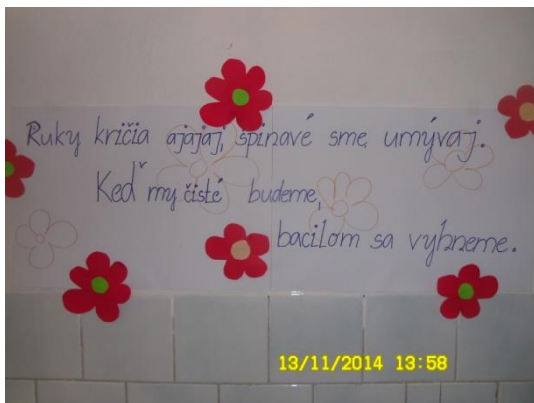 Ruky kričia ajajaj, špinavé sme, umývaj.
Keď my čisté budeme,
bacilom sa vyhneme.
13/11/2014 13:58